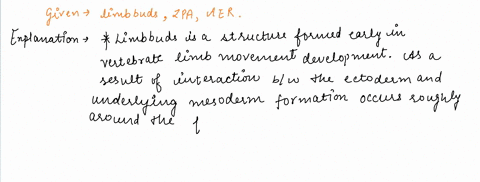 Given → limbbuds, ZPA, AER.
Explanation → * Limbbuds is a structure formed early in
vertebrate limb movement development. As a
result of interaction b/w the ectoderm and
underlying mesoderm formation occurs roughly
around the f